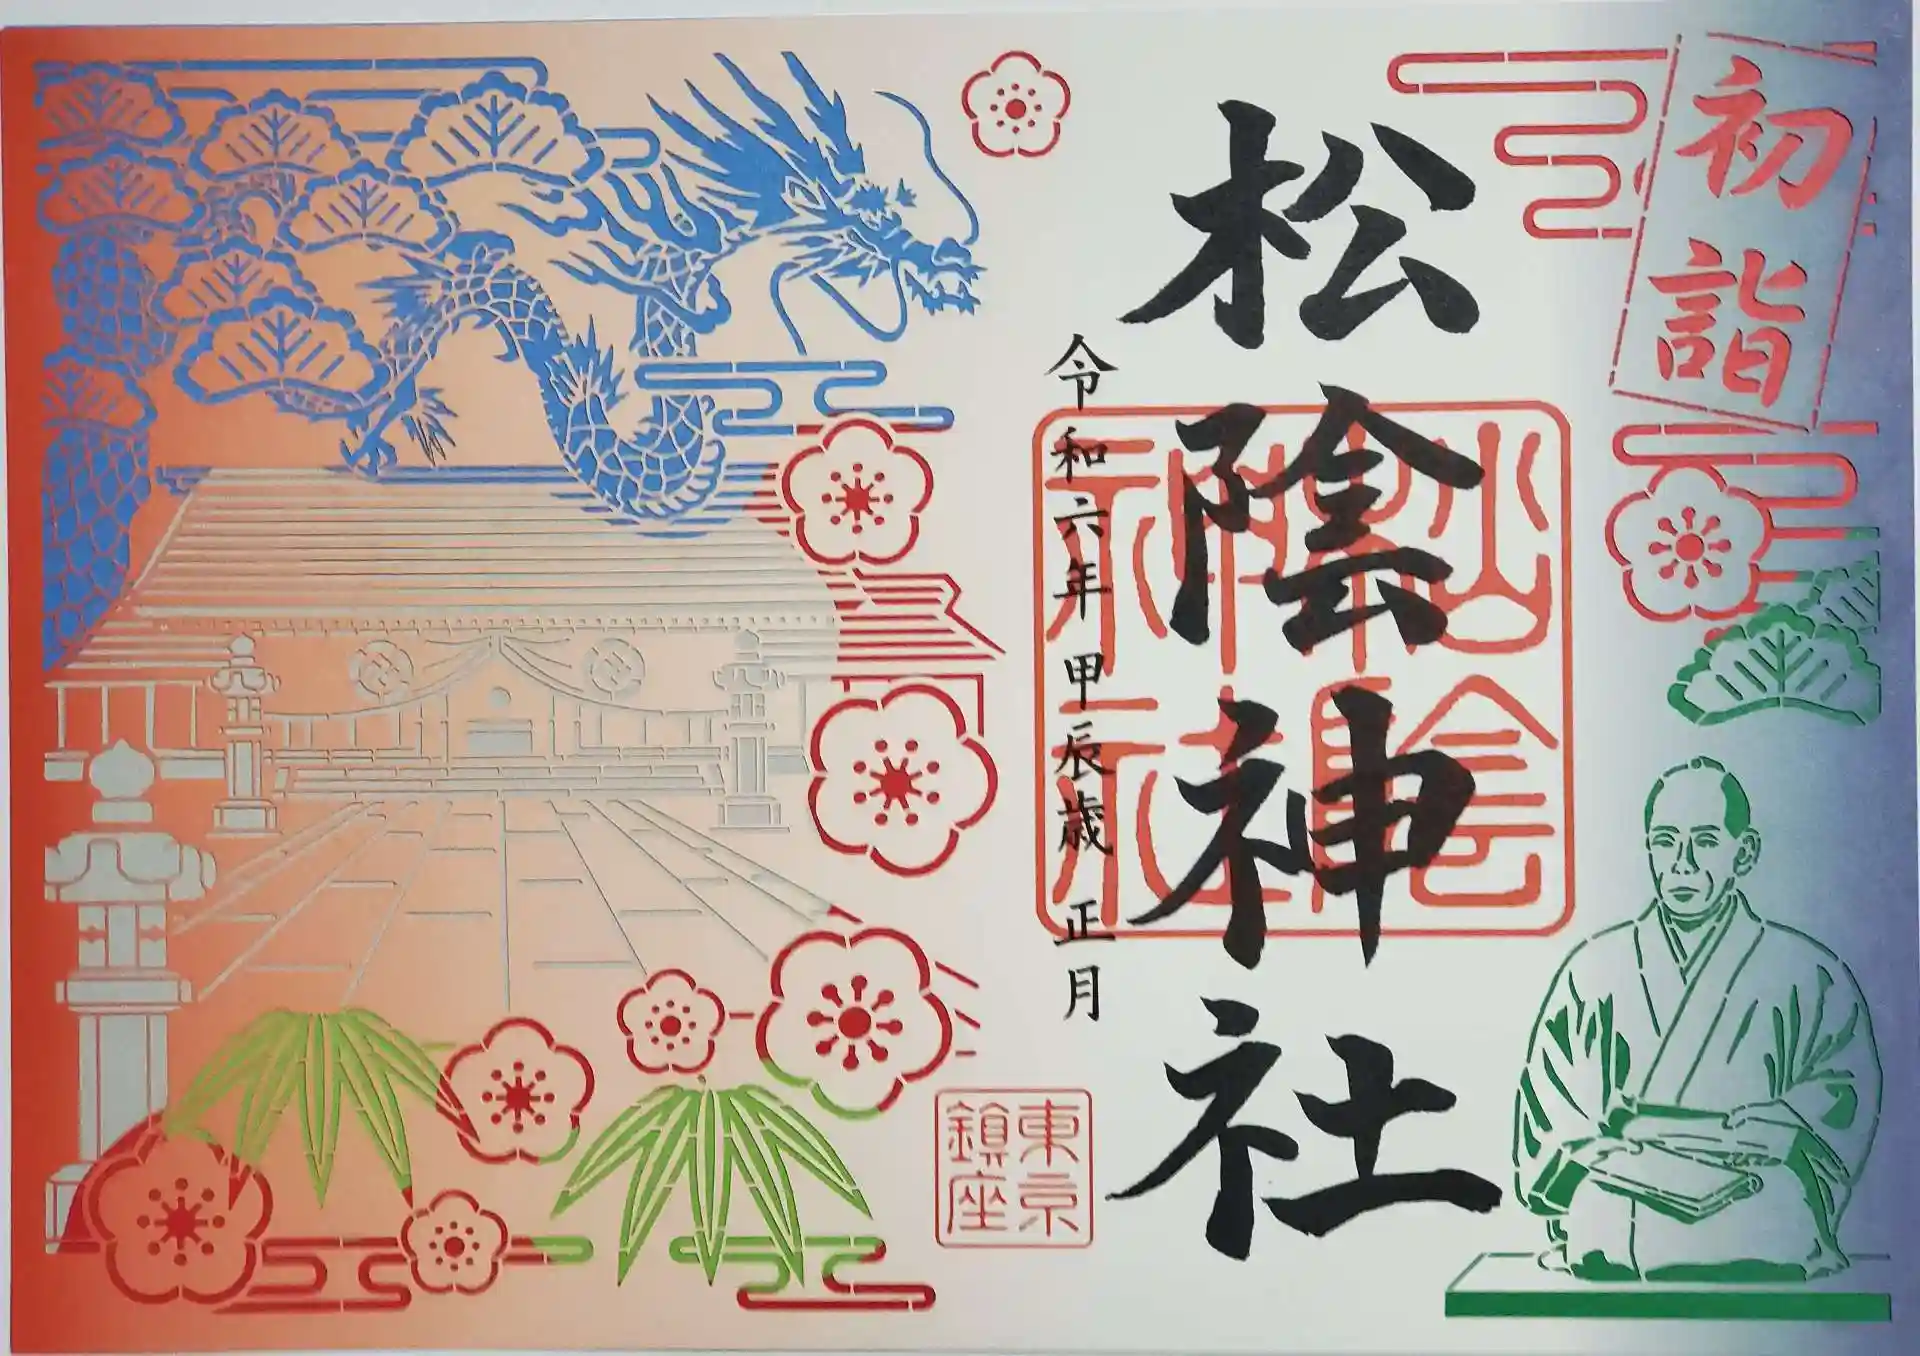 初詣
松陰神社
令和六年 甲辰歳 正月
松陰神社
東京
鎮座